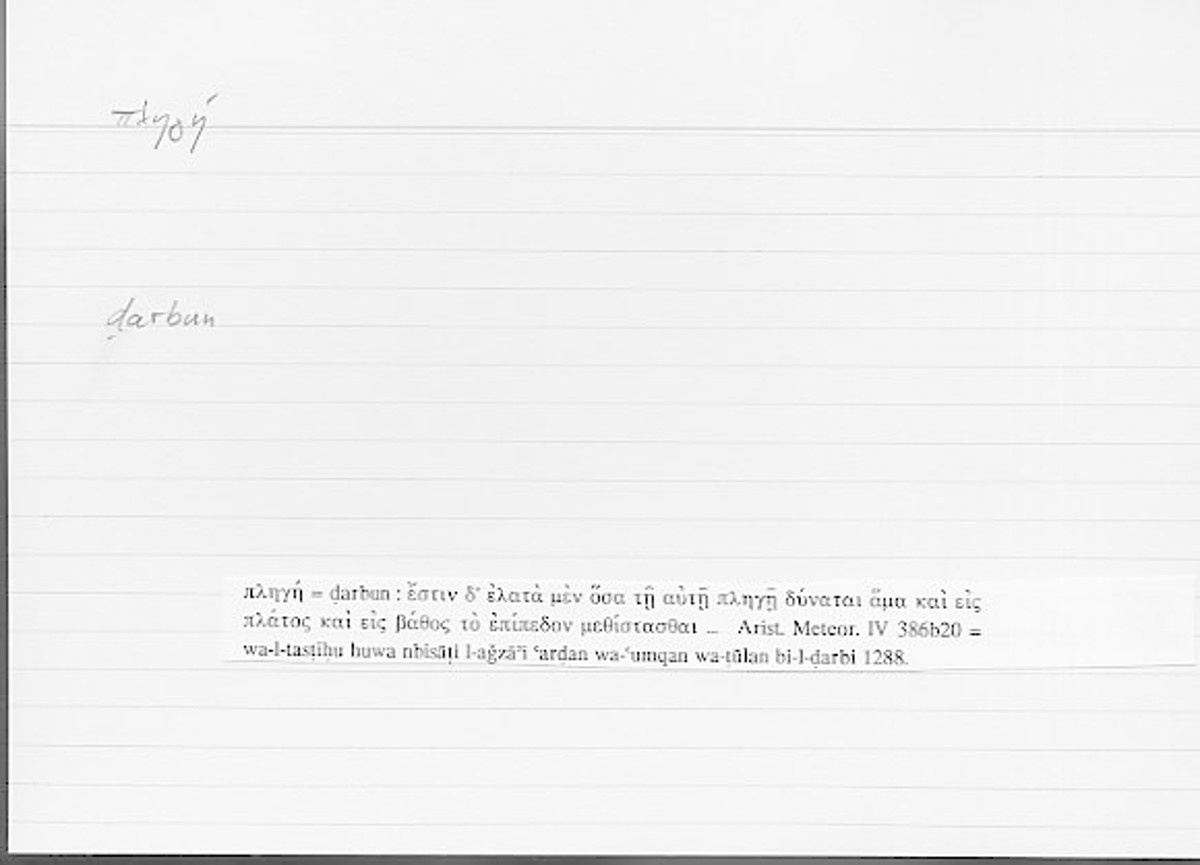 πληγή
ḍarbun
πληγή = ḍarbun : ἔστιν δ' ἐλατὰ μὲν ὅσα τῇ αὐτῇ πληγῇ δύναται ἅμα καὶ εἰς
πλάτος καὶ εἰς βάθος τὸ ἐπίπεδον μεθίστασθαι ... Arist. Meteor. IV 386b20 =
wa-l-tasṭīḥu huwa nbisāṭi l-aǧzāʾi ʿarḍan wa-ʿumqan wa-ṭūlan bi-l-ḍarbi 1288.